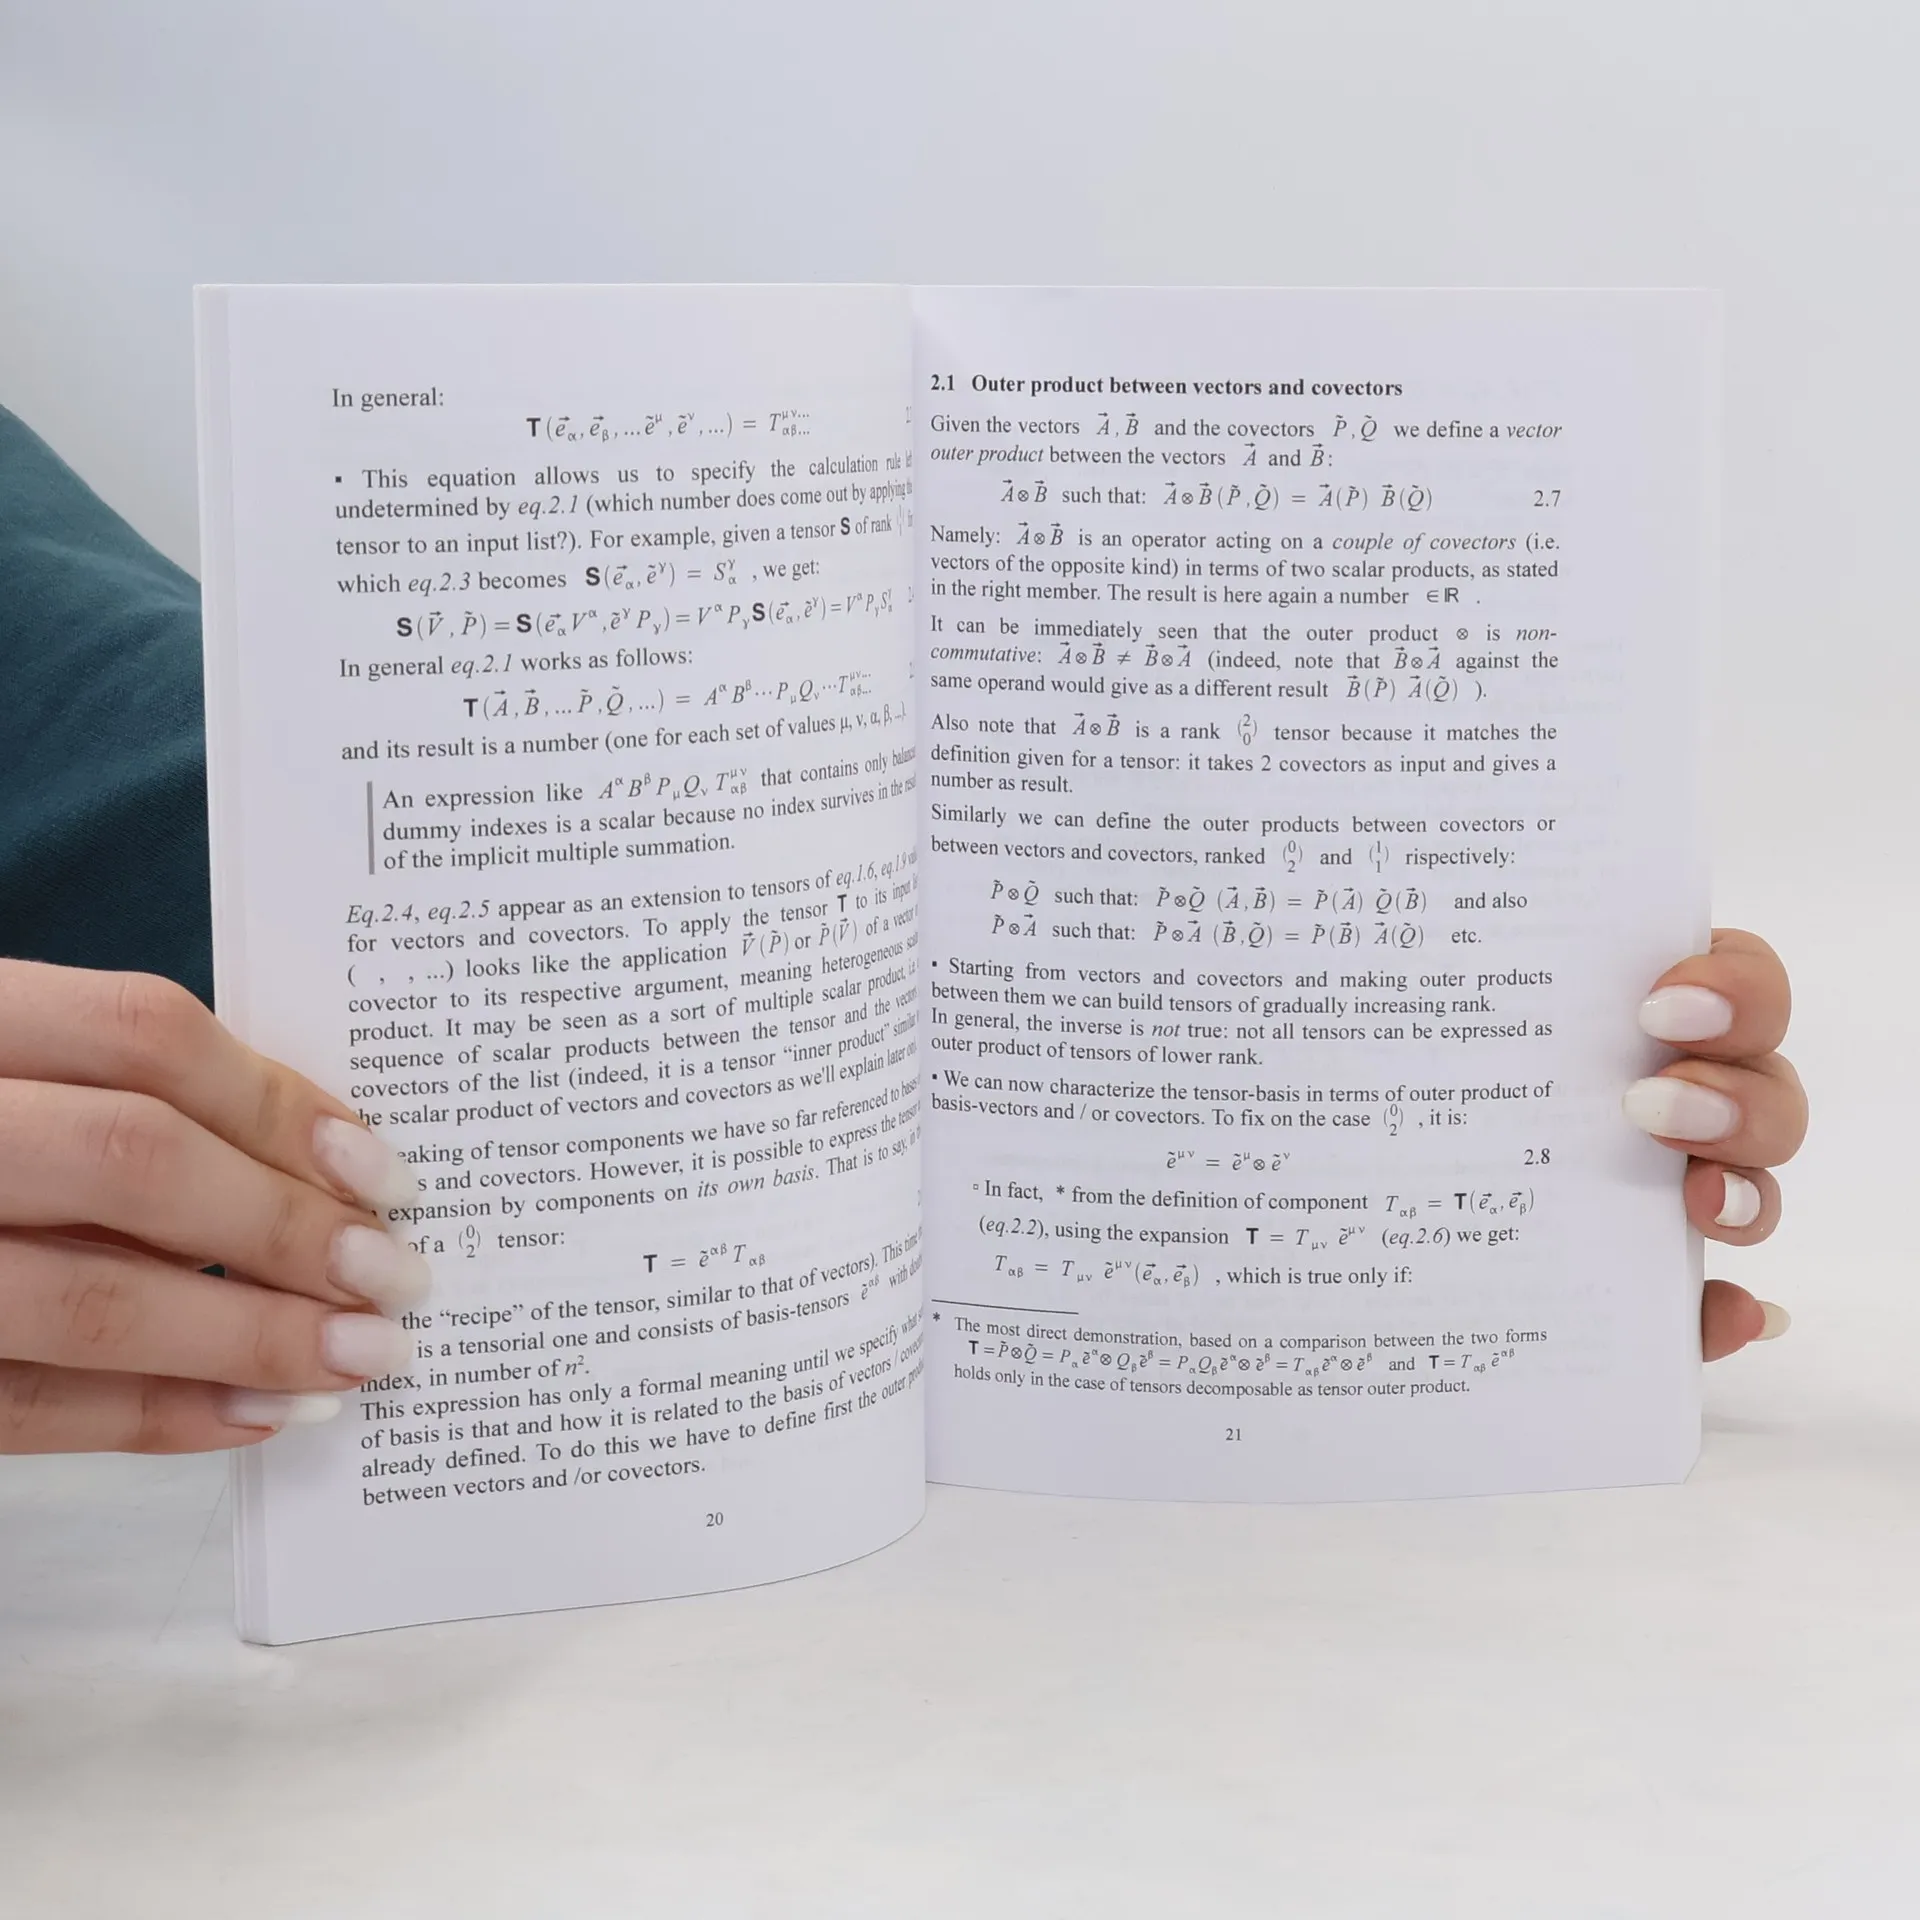 In general:
T(e⃗α, e⃗β, ... ẽ^μ, ẽ^ν, ...) = T^μν...αβ...
▪ This equation allows us to specify the calculation rule
undetermined by eq.2.1 (which number does come out by applying
tensor to an input list?). For example, given a tensor S of rank
which eq.2.3 becomes S(e⃗α, ẽ^γ) = S^γα , we get:
S(V⃗, P̃) = S(e⃗α V^α, ẽ^γ Pγ) = V^α Pγ S(e⃗α, ẽ^γ) = V^α Pγ S^γα
In general eq.2.1 works as follows:
T(A⃗, B⃗, ... P̃, Q̃, ...) = A^α B^β ... Pμ Qν ... T^μν...αβ...
and its result is a number (one for each set of values μ, ν, α, β, ...).
An expression like A^α B^β Pμ Qν T^μναβ that contains only
dummy indexes is a scalar because no index survives in the
of the implicit multiple summation.
Eq.2.4, eq.2.5 appear as an extension to tensors of eq.1.6, eq.1.9
for vectors and covectors. To apply the tensor T to its input
( , , ...) looks like the application V⃗(P̃) or P̃(V⃗) of a vector
covector to its respective argument, meaning heterogeneous
product. It may be seen as a sort of multiple scalar product,
sequence of scalar products between the tensor and the
covectors of the list (indeed, it is a tensor “inner product”
scalar product of vectors and covectors as we'll explain later
of tensor components we have so far referenced to
and covectors. However, it is possible to express the
expansion by components on its own basis. That is to say,
of a (0 2) tensor:
T = ẽ^αβ Tαβ
the “recipe” of the tensor, similar to that of vectors). This time
is a tensorial one and consists of basis-tensors ẽ^αβ with
index, in number of n².
This expression has only a formal meaning until we specify what
of basis is that and how it is related to the basis of vectors /
already defined. To do this we have to define first the outer
between vectors and /or covectors.
20
2.1 Outer product between vectors and covectors
Given the vectors A⃗, B⃗ and the covectors P̃, Q̃ we define a vector
outer product between the vectors A⃗ and B⃗:
A⃗⊗B⃗ such that: A⃗⊗B⃗(P̃,Q̃) = A⃗(P̃) B⃗(Q̃) 2.7
Namely: A⃗⊗B⃗ is an operator acting on a couple of covectors (i.e.
vectors of the opposite kind) in terms of two scalar products, as stated
in the right member. The result is here again a number ∈ℝ .
It can be immediately seen that the outer product ⊗ is non-
commutative: A⃗⊗B⃗ ≠ B⃗⊗A⃗ (indeed, note that B⃗⊗A⃗ against the
same operand would give as a different result B⃗(P̃) A⃗(Q̃) ).
Also note that A⃗⊗B⃗ is a rank (2 0) tensor because it matches the
definition given for a tensor: it takes 2 covectors as input and gives a
number as result.
Similarly we can define the outer products between covectors or
between vectors and covectors, ranked (0 2) and (1 1) rispectively:
P̃⊗Q̃ such that: P̃⊗Q̃ (A⃗,B⃗) = P̃(A⃗) Q̃(B⃗) and also
P̃⊗A⃗ such that: P̃⊗A⃗ (B⃗,Q̃) = P̃(B⃗) A⃗(Q̃) etc.
▪ Starting from vectors and covectors and making outer products
between them we can build tensors of gradually increasing rank.
In general, the inverse is not true: not all tensors can be expressed as
outer product of tensors of lower rank.
▪ We can now characterize the tensor-basis in terms of outer product of
basis-vectors and / or covectors. To fix on the case (0 2) , it is:
ẽ^μν = ẽ^μ⊗ẽ^ν 2.8
▫ In fact, * from the definition of component Tαβ = T(e⃗α, e⃗β)
(eq.2.2), using the expansion T = Tμν ẽ^μν (eq.2.6) we get:
Tαβ = Tμν ẽ^μν(e⃗α, e⃗β) , which is true only if:
* The most direct demonstration, based on a comparison between the two forms
T = P̃⊗Q̃ = Pα ẽ^α⊗Qβ ẽ^β = Pα Qβ ẽ^α⊗ẽ^β = Tαβ ẽ^α⊗ẽ^β and T = Tαβ ẽ^αβ
holds only in the case of tensors decomposable as tensor outer product.
21